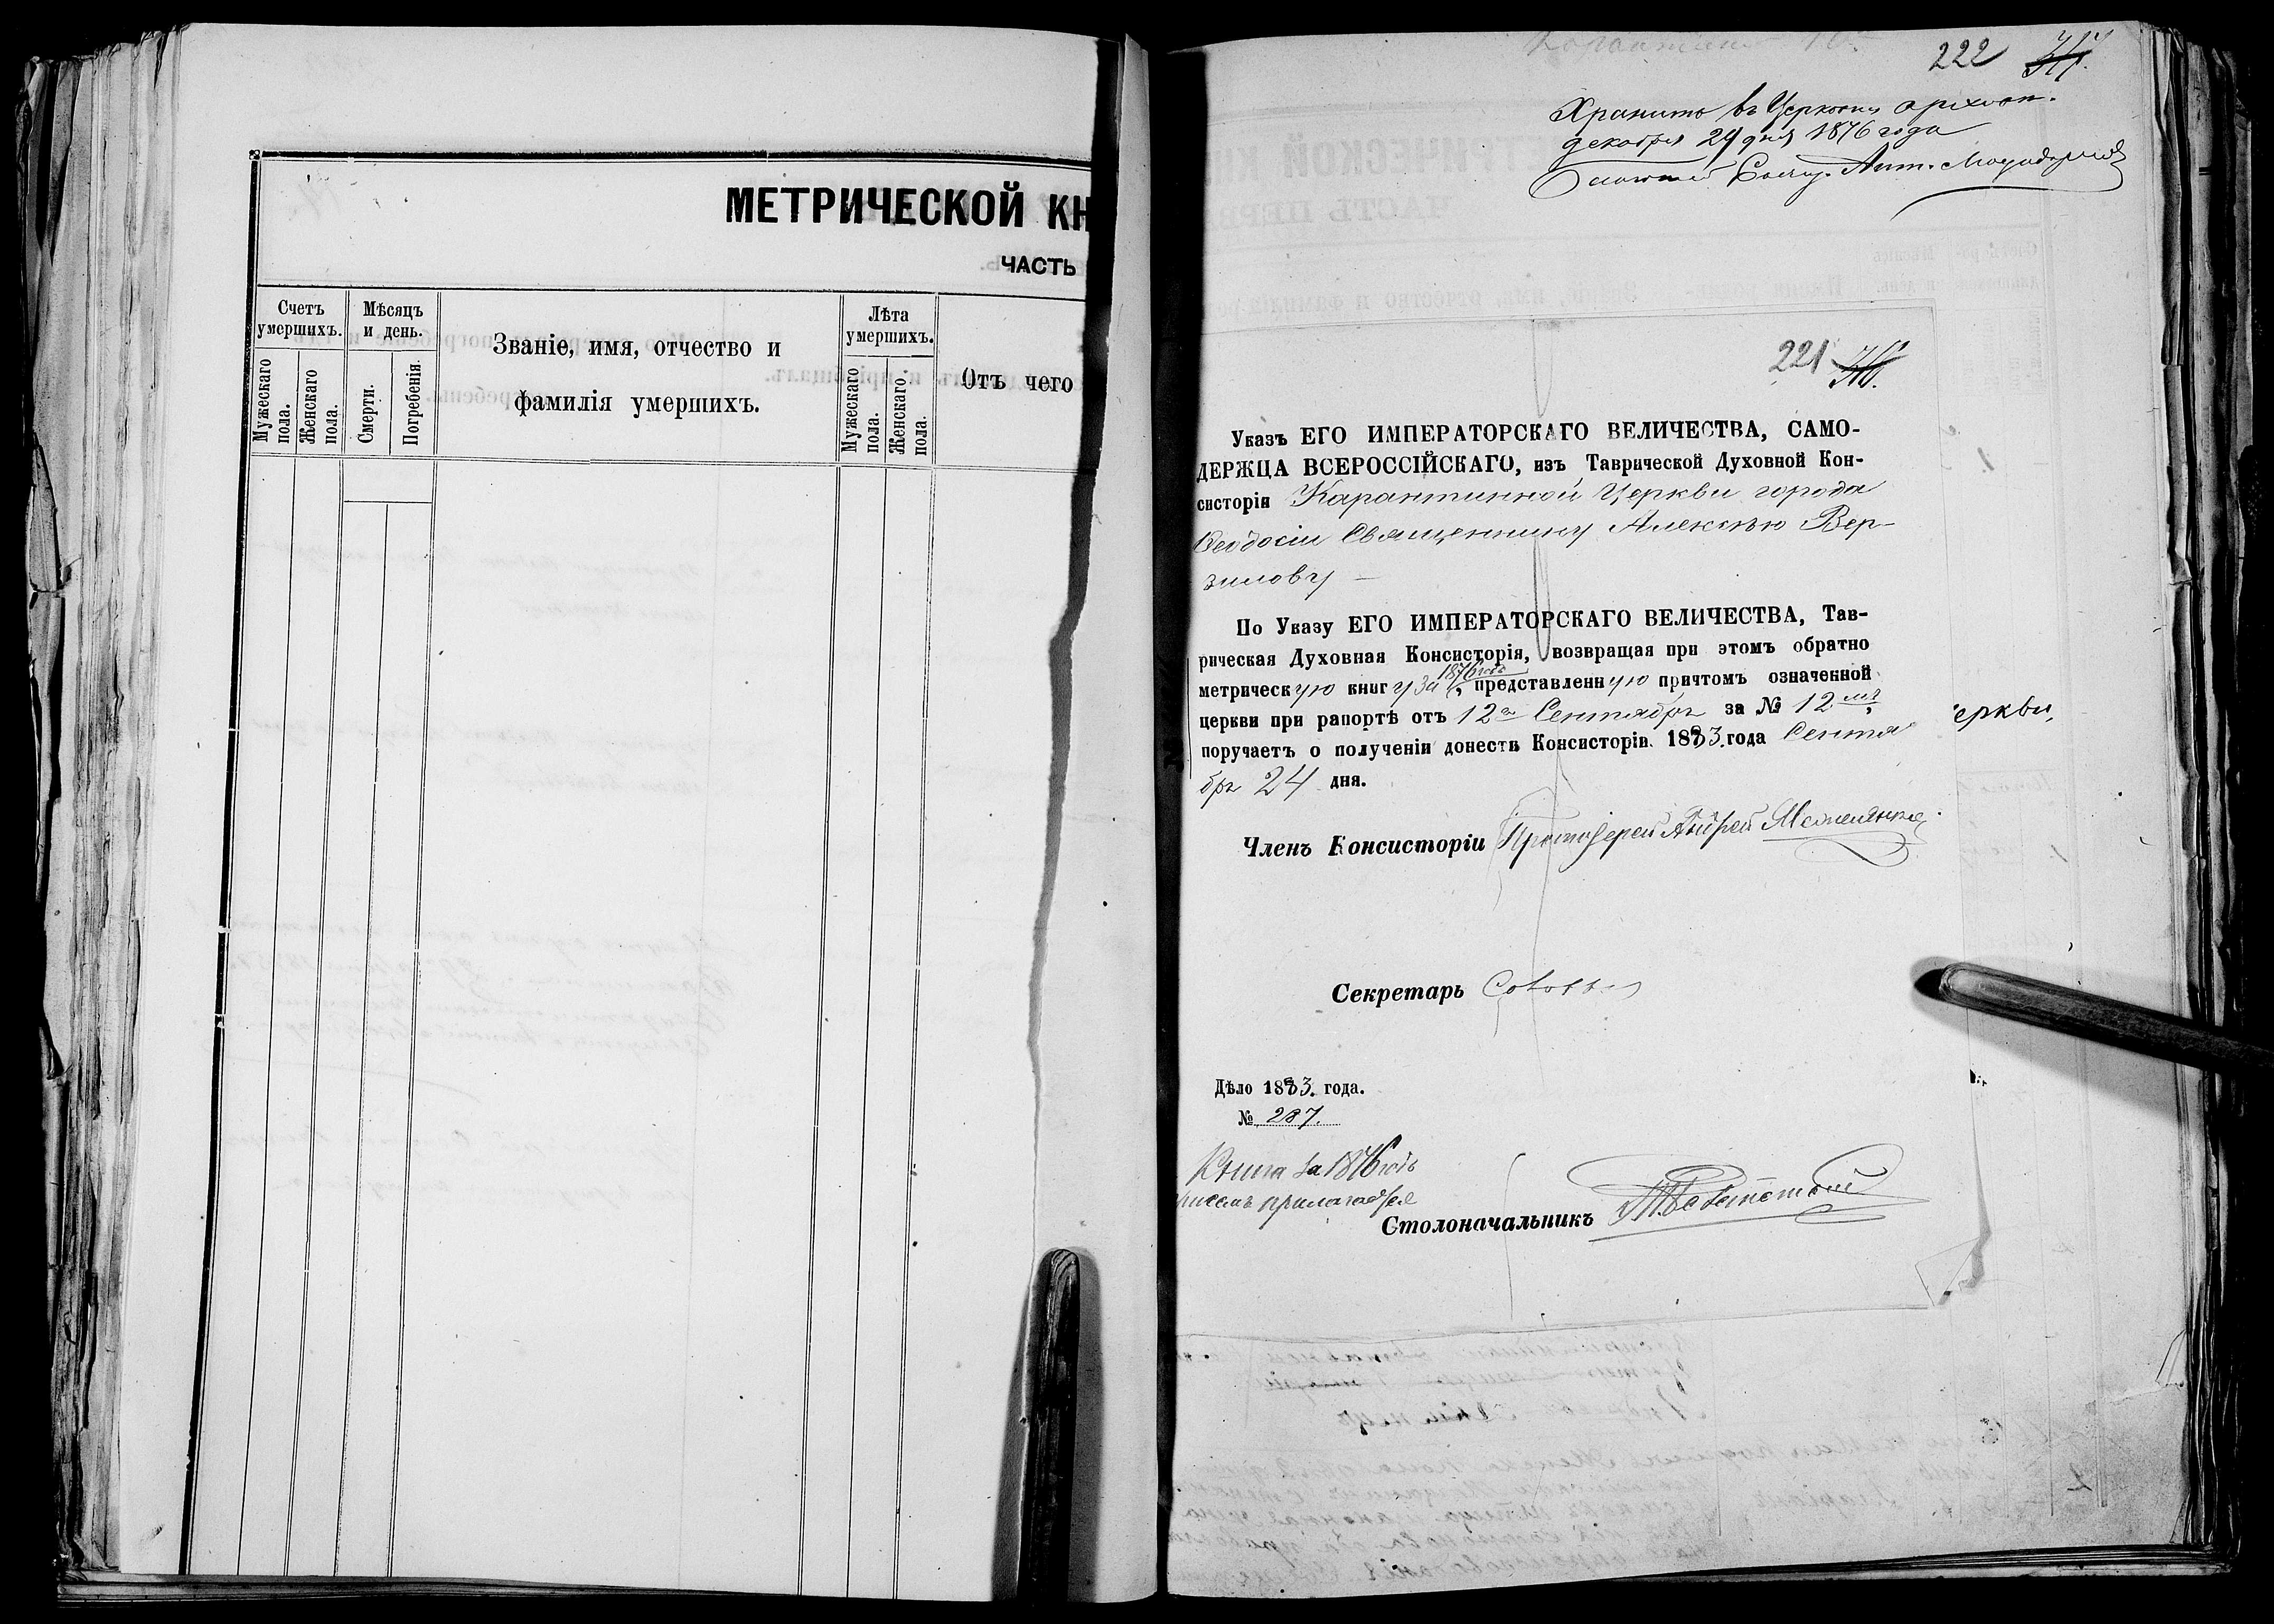 МЕТРИЧЕСКОЙ КН
ЧАСТЬ
Счетъ умершихъ.
Мужескаго пола.
Женскаго пола.
Мѣсяцъ и день.
Смерти.
Погребенія.
Званіе, имя, отчество и
фамилія умершихъ.
Лѣта умершихъ.
Мужескаго пола.
Женскаго пола.
Отъ чего
222
Хранить въ Церковн архивѣ.
декабря 29 дня 1876 года
221
Указъ ЕГО ИМПЕРАТОРСКАГО ВЕЛИЧЕСТВА, САМО-
ДЕРЖЦА ВСЕРОССІЙСКАГО, изъ Таврической Духовной Кон-
систоріи Карантинной Церкви города
Ѳеодосіи Священнику Алексѣю Вер-
зилову —
По Указу ЕГО ИМПЕРАТОРСКАГО ВЕЛИЧЕСТВА, Тав-
рическая Духовная Консисторія, возвращая при этомъ обратно
метрическую книгу за 1876 годъ, представленную причтомъ означенной
церкви при рапортѣ отъ 12 Сентябр за № 12 мъ,
поручаетъ о полученіи донести Консисторіи. 1883 года Сентя
бр 24 дня.
еркви,
Членъ Консисторіи Протоіерей Андрей
Секретарь
Дѣло 1883. года.
№ 287.
Книга за 1876 годъ
при семъ прилагается
Столоначальникъ